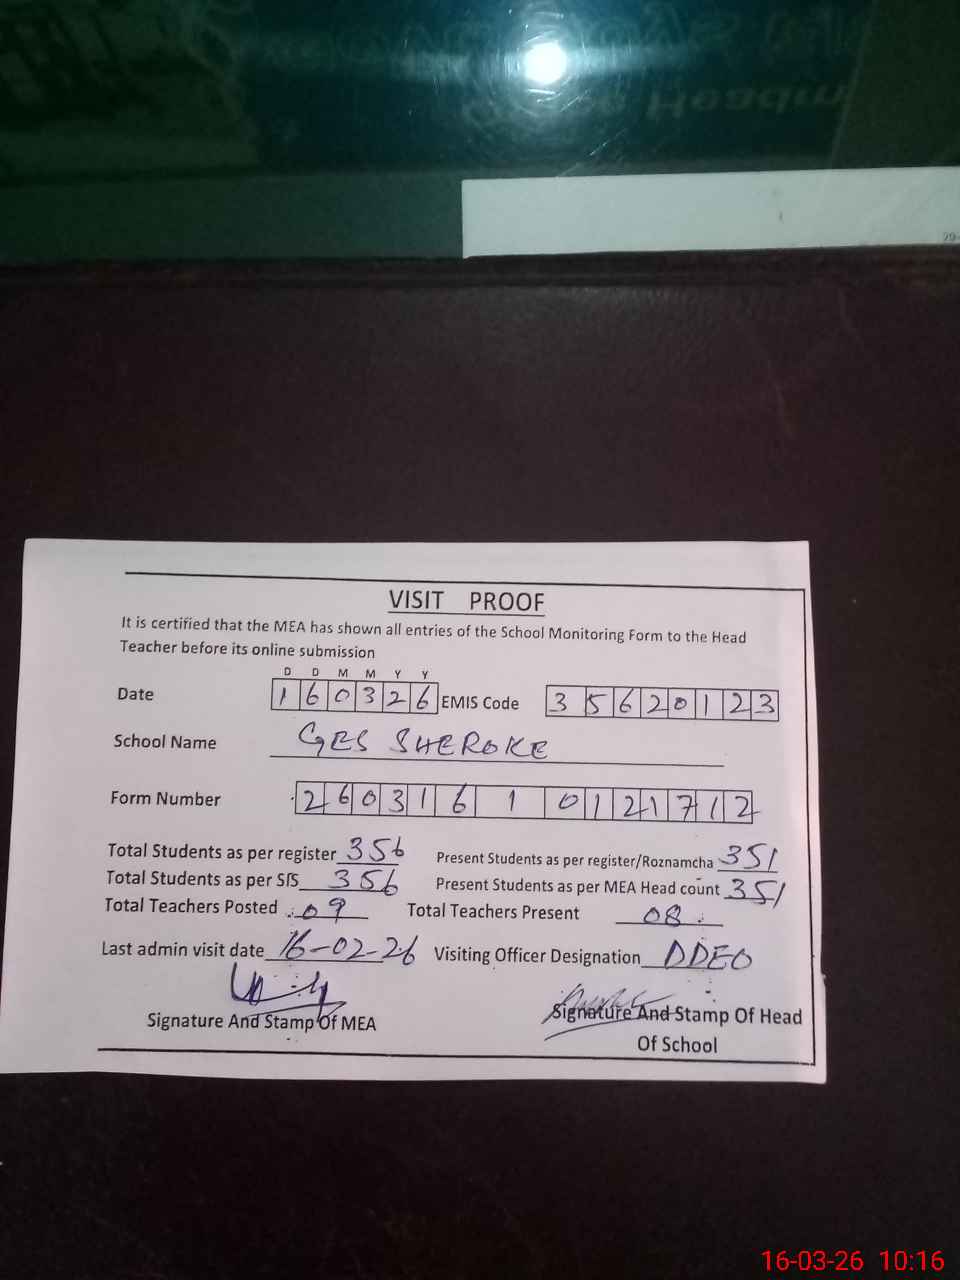 Headm
29-
VISIT PROOF
It is certified that the MEA has shown all entries of the School Monitoring Form to the Head
Teacher before its online submission
D D M M Y Y
Date 1 6 0 3 2 6 EMIS Code 3 5 6 2 0 1 2 3
School Name GES SHEROKE
Form Number 2 6 0 3 1 6 1 0 1 2 1 7 1 2
Total Students as per register 356 Present Students as per register/Roznamcha 351
Total Students as per SIS 356 Present Students as per MEA Head count 351
Total Teachers Posted 09 Total Teachers Present 08
Last admin visit date 16-02-26 Visiting Officer Designation DDEO
Signature And Stamp Of MEA Signature And Stamp Of Head
Of School
16-03-26 10:16